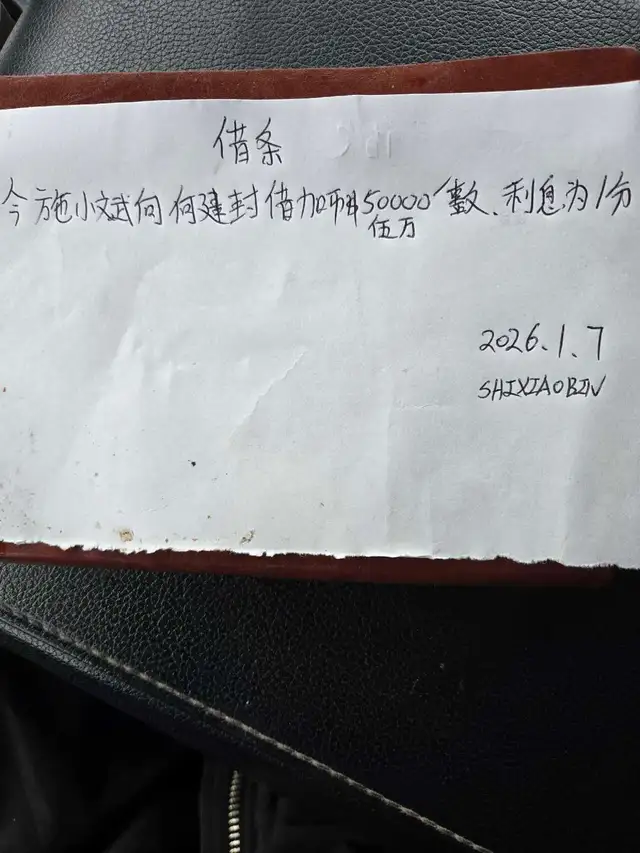 借条
今施小斌向何建封借加币50000整数、利息为1分
伍万
2026.1.7
SHIXIAOBIN